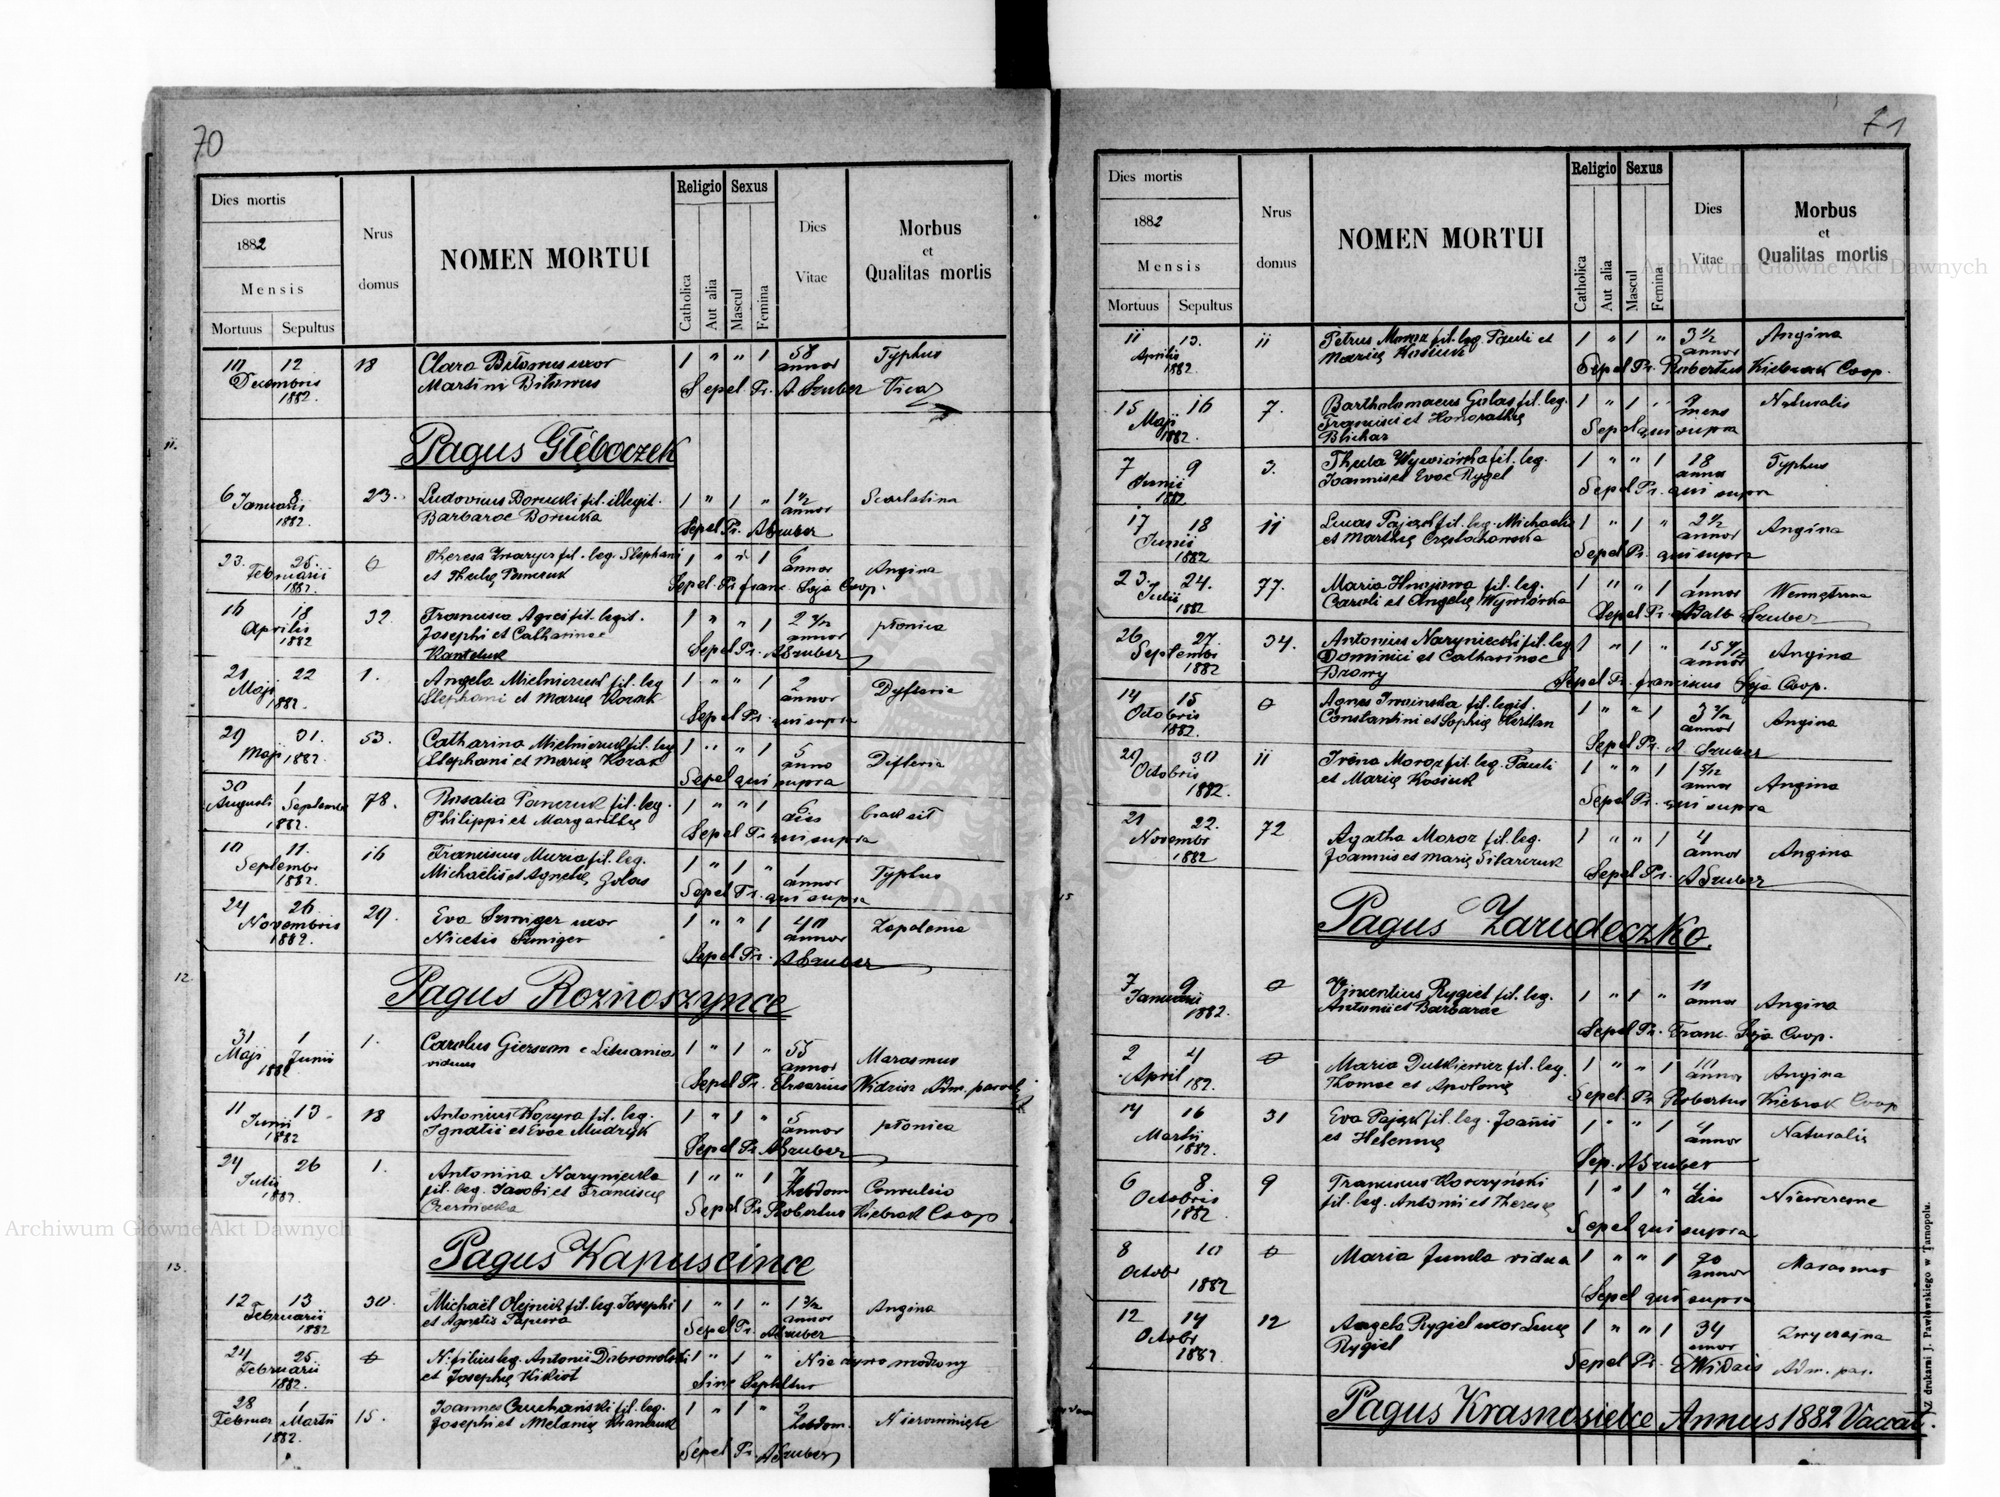 70
Dies mortis
1882
Mensis
Mortuus Sepultus
Nrus
domus
NOMEN MORTUI
Religio Sexus
Catholica
Aut alia
Mascul
Femina
Dies
Vitae
Morbus
et
Qualitas mortis
10 12 18 Clara Bitowus uxor 1 " " 1 58 Typhus
Decembris annor
1882. Martini Bitowus Sepel Pr. A Szuber Vica
11.
Pagus Głęboczek
6 8 23. Ludovicus Borucki fil. illegit. 1 " 1 " 1 1/2 Scarlatina
Januarii annor
1882. Barbarae Borucka Sepel Pr. ASzuber
23. 25. 0 Theresa fil. leg. Stephani 1 " " 1 6 Angina
Februarii annor
1882. et Theclę Panczuk Sepel Pr. franc. Soja Coop.
16 18 32. Francisca fil. legit. 1 " " 1 2 płonica
Aprilis Josephi et Catharinae annor
1882 Sepel Pr. ASzuber
21 22 1. Angela Mielniczuk fil. leg 1 " " 1 2 Dyfteria
Maji annor
1882. Stephani et Marię Kozak Sepel Pr. qui supra
29 31. 53. Catharina Mielniczuk fil. leg 1 " " 1 5 Difteria
Maji 1882. Stephani et Marię Kozak anno
Sepel qui supra
30 1 78. Rosalia Panczuk fil. leg. 1 " " 1 6 brak sił
Augusti Septembr dies
1882. Philippi et Margarethę Sepel Pr. qui supra
10 11. 16 Franciscus Muzia fil. leg. 1 " 1 " 1 Typhus
Septembr annor
1882. Michaelis et Agnetię Golas Sepel Pr. qui supra
24 26 29. Eva Szmiger uxor 1 " " 1 40 Zapalenie
Novembris annor
1882. Nicetis Szmiger Sepel Pr. ASzuber
12.
Pagus Roznoszynce
31 1 1. Carolus e Lituania 1 " 1 " 55 Marasmus
Maji Junii viduus annor
1882 Sepel Pr. Adm. paroch
11 13 18 Antonius fil. leg. 1 " 1 " 5 płonica
Junii annor
1882 Ignatii et Evae Mudryk Sepel Pr. ASzuber
24 26 1. Antonina Naryniecka 1 " " 1 7 Convulsio
Julii fil. leg. Jacobi et Franciscę hebdom
1882. Czerniecka Sepel Pr Robertus Kiebzak Coop.
13.
Pagus Kapuscince
12 13 30. Michaël Olejnik fil. leg. Josephi 1 " 1 " 1 3/12 Angina
Februarii annor
1882 et Agnetis Sepel Pr. ASzuber
24 25 0 N. filius leg. Antonii Dobrowolski 1 " 1 " Nie żywo
Februarii
1882. et Josephę Sine Sepultur
28 1 15. Joannes fil. leg. 1 " 1 " 2
Februar Martii Josephi et Melanię hebdom.
1882. Sepel Pr. ASzuber
71
Dies mortis
1882
Mensis
Mortuus Sepultus
Nrus
domus
NOMEN MORTUI
Religio Sexus
Catholica
Aut alia
Mascul
Femina
Dies
Vitae
Morbus
et
Qualitas mortis
11 13. 11 Petrus Moroz fil. leg. Pauli et 1 " 1 " 3 1/2 Angina
Aprilis Marię Kosiuk annor
1882. Sepel Pr. Robertus Kiebzak Coop.
15 16 7. Bartholomaeus Golas fil. leg. 1 " 1 " 9 Naturalis
Maji Francisci et Honorathę mens
1882. Blichar Sepel qui supra
7 9 3. Thecla Wywiórka fil. leg. 1 " " 1 18 Typhus
Junii Joannis et Evae Rygel anno
1882. Sepel Pr. qui supra
17 18 11 Lucas Pająk fil. leg. Michaelis 1 " 1 " 2 1/2 Angina
Junii et Marthę Częstochowska annor
1882 Sepel Pr. qui supra
23. 24. 77. Maria fil. leg. 1 " " 1 1
Julii Caroli et Angelę Wywiórka annor
1882 Sepel Pr. Szuber
26 27. 34. Antonius Naryniecki fil. leg 1 " 1 " 15 Angina
Septembr Dominici et Catharinae annor
1882 Sepel Pr. franciscus Soja Coop.
14 15 0 Agnes fil. legit. 1 " " 1 3 Angina
Octobris Constantini et Sophię annor
1882. Sepel Pr. A Szuber
29 30 11 Iréna Moroz fil. leg. Pauli 1 " " 1 1 5/12 Angina
Octobris et Marię Kosiuk annor
1882. Sepel Pr. qui supra
21 22. 72 Agatha Moroz fil. leg. 1 " " 1 4 Angina
Novembr Joannis et Marię annor
1882 Sepel Pr. ASzuber
15
Pagus Zarudeczko.
7 9 0 Vincentius Rygiel fil. leg. 1 " 1 " 11 Angina
Januarii Antonii et Barbarae annor
1882. Sepel Pr. Franc. Soja Coop.
2 4 0 Maria Dutkiewicz fil. leg. 1 " " 1 10 Angina
April 182. Thomae et Apolonię annor
Sepel Pr Robertus Kiebzak Coop
14 16 31 Eva Pająk fil. leg. Joanis 1 " " 1 4 Naturalis
Martii et Helennę annor
1882. Sep. ASzuber
6 8. 9 Franciscus Korczyński 1 " 1 " 4
Octobris fil. leg. Antonii et Theresę dies
1882 Sepel qui supra
8 10 0 Maria vidua 1 " " 1 70 Marasmus
Octobr annor
1882 Sepel qui supra
12 14 12 Angela Rygiel uxor Lucę 1 " " 1 34 Zwyczajna
Octobr Rygiel annor
1882 Sepel Pr. Adm. par.
Pagus Krasnosielce Annus 1882 Vaccat.
Z drukarni J. Pawłowskiego w Tarnopolu.
Archiwum Główne Akt Dawnych
Archiwum Główne Akt Dawnych